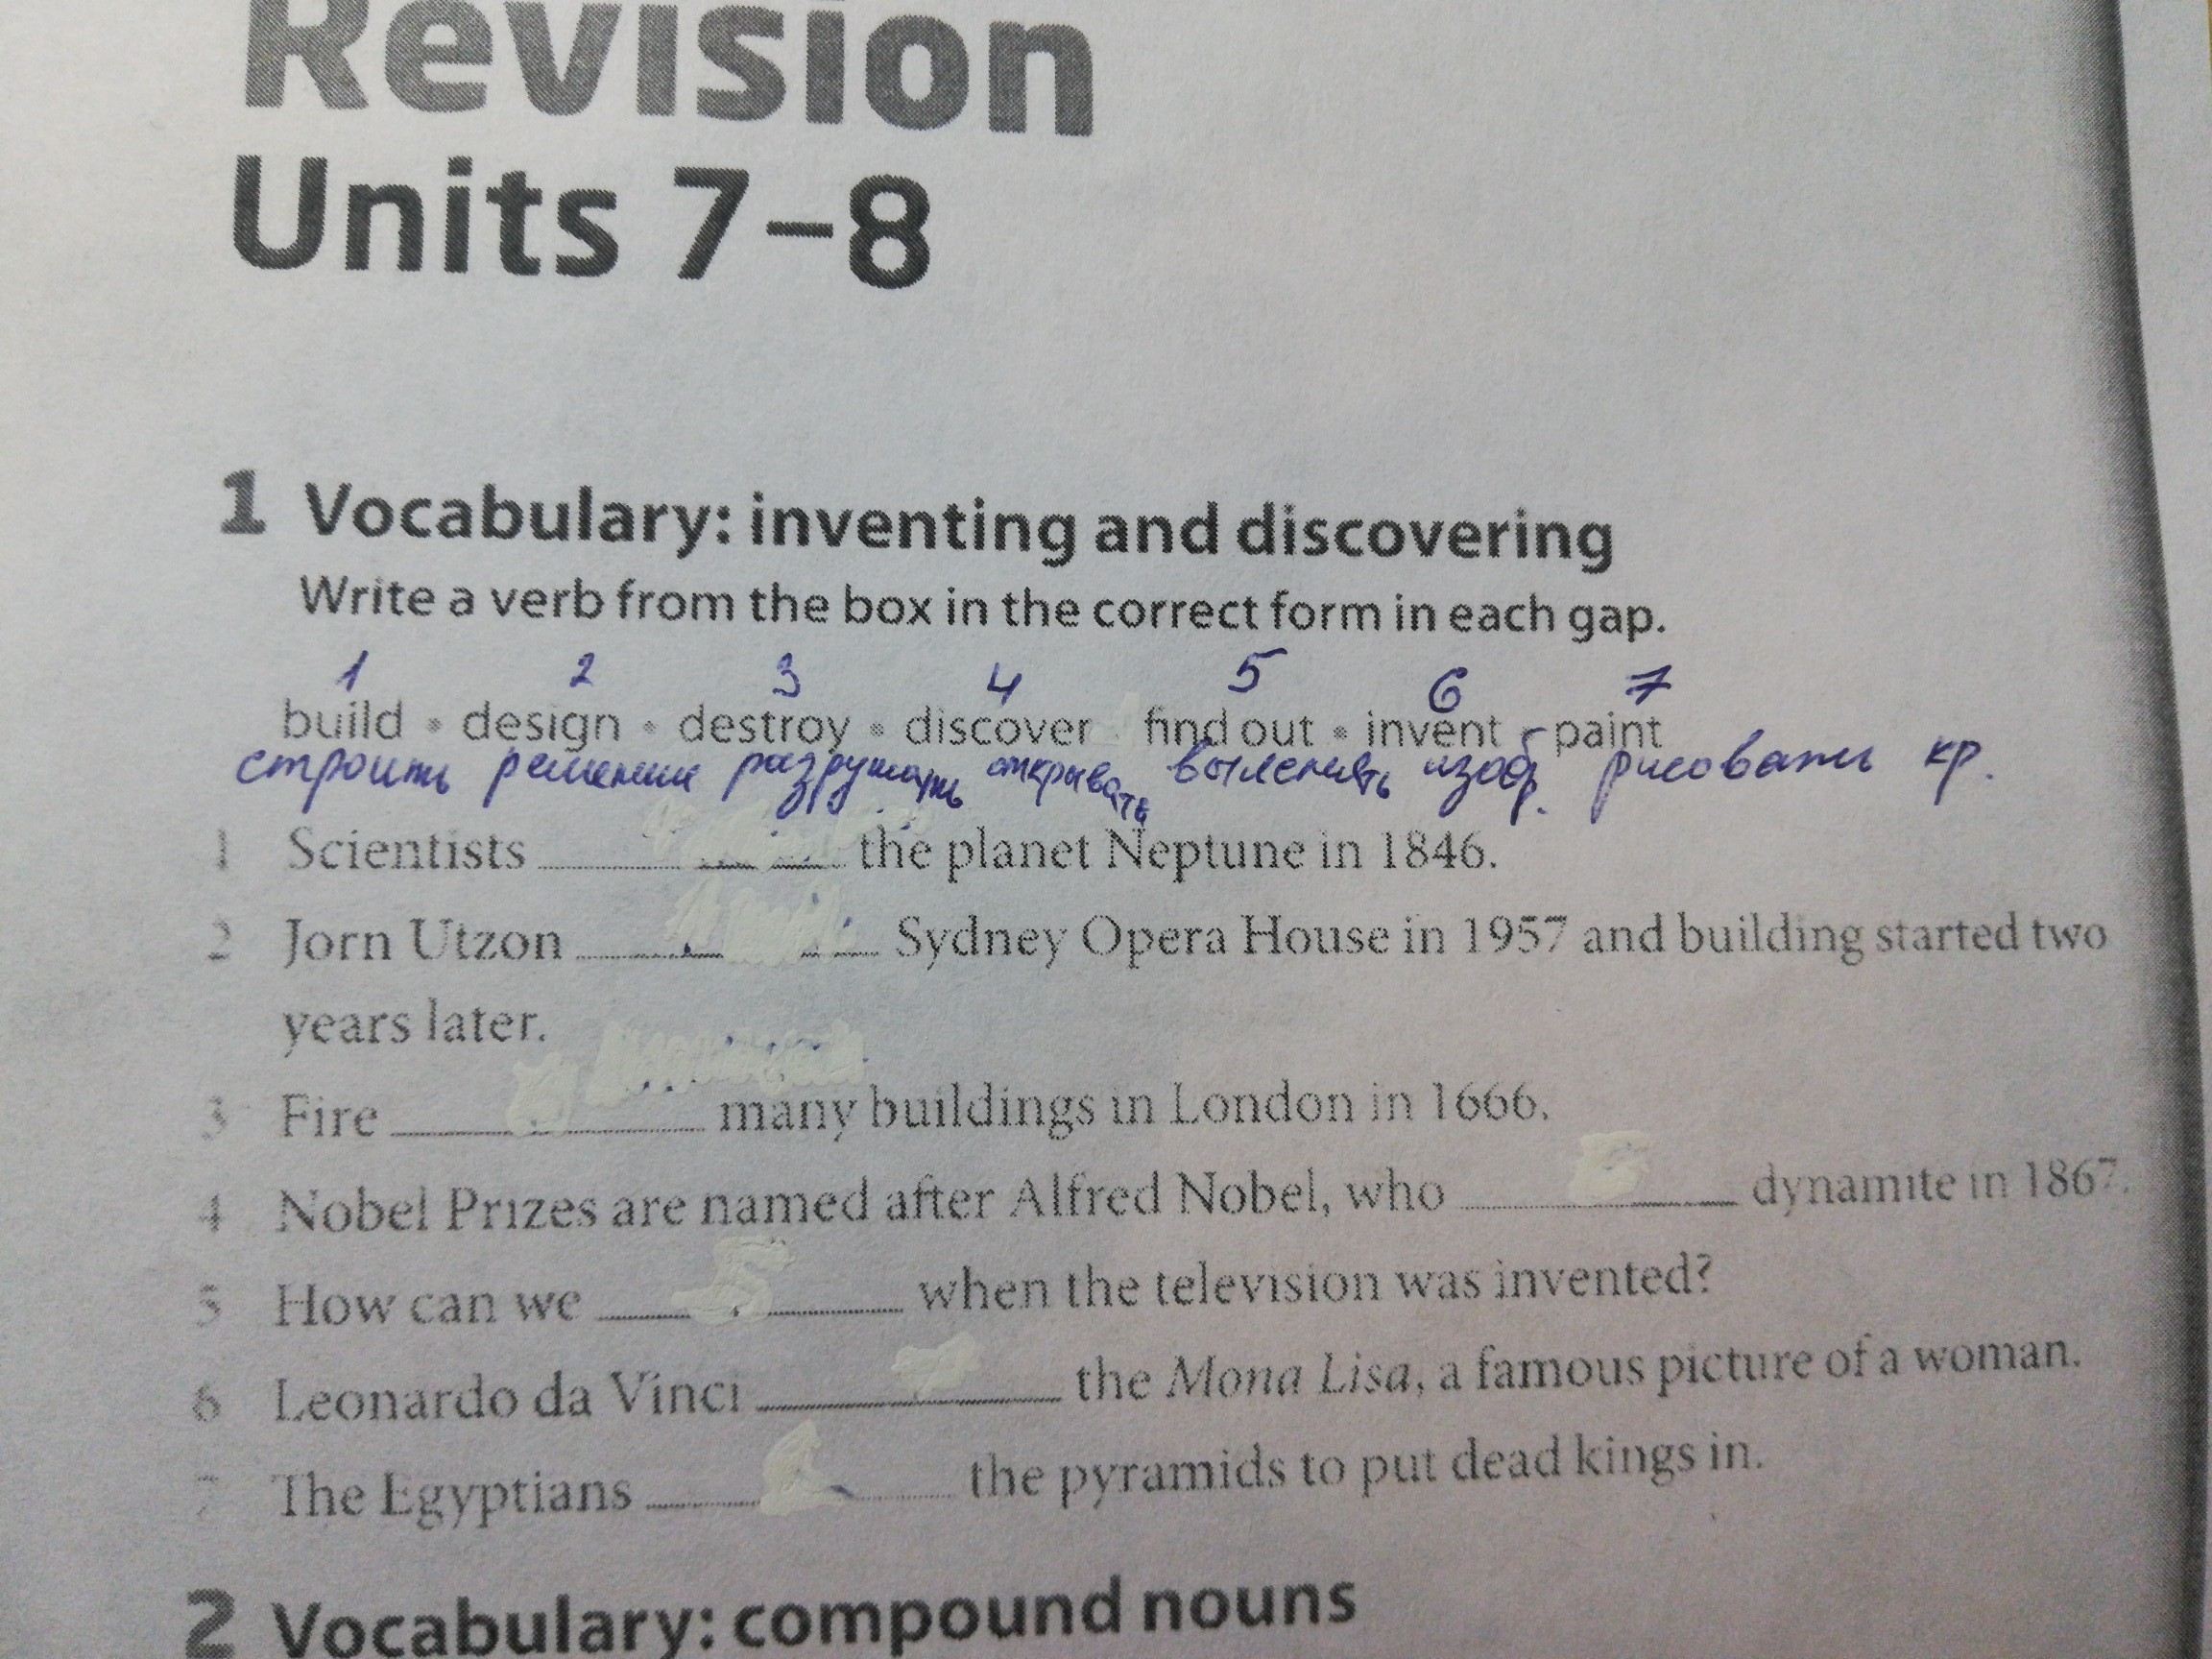 Revision
Units 7–8
1 Vocabulary: inventing and discovering
Write a verb from the box in the correct form in each gap.
1 2 3 4 5 6 7
build • design • destroy • discover find out • invent • paint
строить решения разрушать открывать выяснить изоб. рисовать кр.
1 Scientists ______ the planet Neptune in 1846.
2 Jorn Utzon ______ Sydney Opera House in 1957 and building started two
years later.
3 Fire ______ many buildings in London in 1666.
4 Nobel Prizes are named after Alfred Nobel, who ______ dynamite in 1867.
5 How can we ______ when the television was invented?
6 Leonardo da Vinci ______ the Mona Lisa, a famous picture of a woman.
7 The Egyptians ______ the pyramids to put dead kings in.
2 Vocabulary: compound nouns